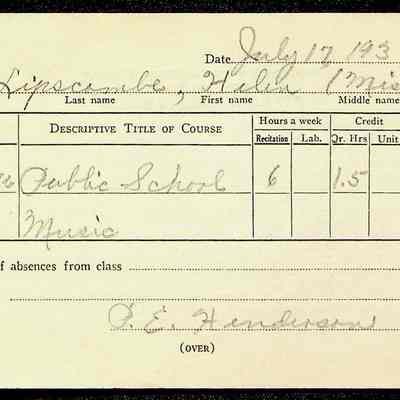 Date July 17, 193
Lipscombe, Helen (Mis
Last name First name Middle name
Descriptive Title of Course Hours a week Credit
Recitation Lab. Qr. Hrs Unit
6 Public School 6 1.5
Music
f absences from class
P. E. Henderson
(OVER)